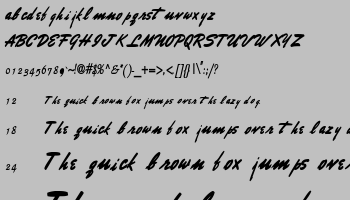 abcdefghijklmnopqrstuvwxyz
ABCDEFGHIJKLMNOPQRSTUVWXYZ
0123456789·~!@#$%^&*()-_+=>,<[]{}|\":;/?
12 The quick brown fox jumps over the lazy dog
18 The quick brown fox jumps over the lazy d
24 The quick brown fox jumps over